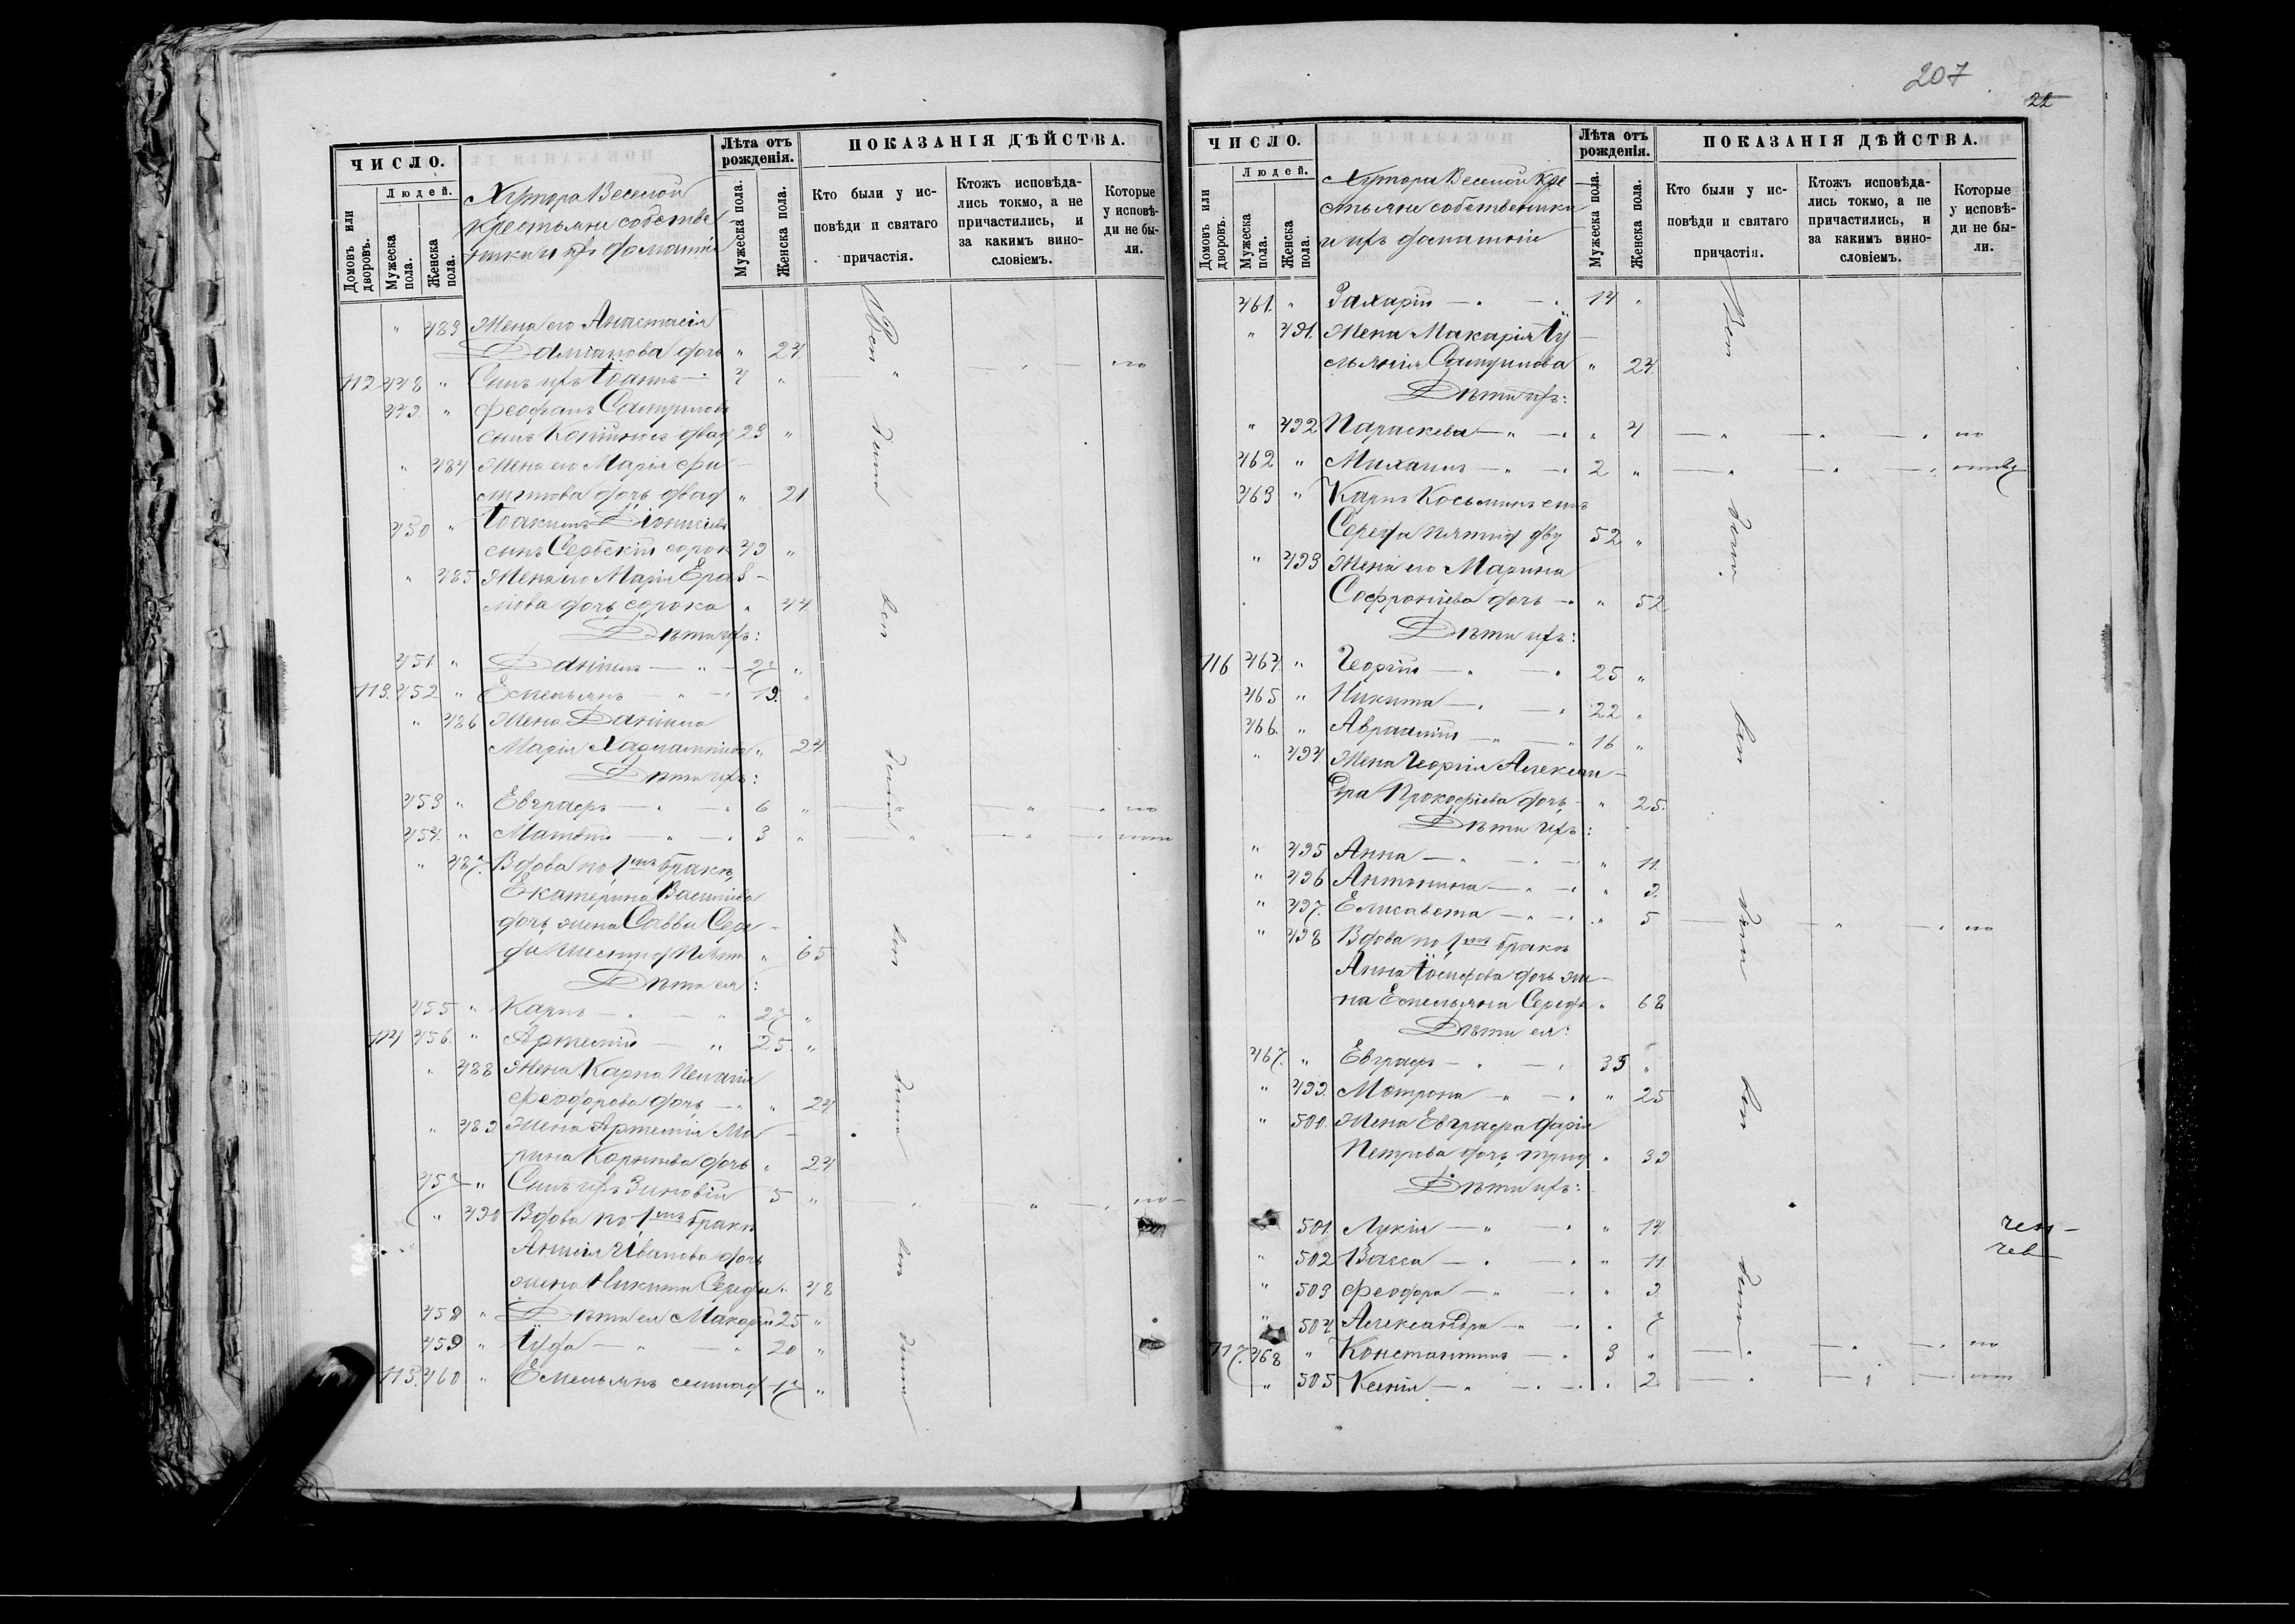 207
22
ЧИСЛО.
Людей.
Домовъ или дворовъ.
Мужеска пола.
Женска пола.
Хутора Веселой
крестьяне собстве
нники и ихъ домашніе
Лѣта отъ рожденія.
Мужеска пола.
Женска пола.
ПОКАЗАНІЯ ДѢЙСТВА.
Кто были у ис-
повѣди и святаго
причастія.
Ктожъ исповѣда-
лись токмо, а не
причастились, и
за какимъ вино-
словіемъ.
Которые
у исповѣ-
ди не бы-
ли.
" 483 Жена его Анастасія
Даміанова дочь " 24
112 448 " Сынъ ихъ Іоаннъ — 4 "
449 " Феофанъ
сынъ двад 23 "
" 484 Жена его Марія Фи-
липпова дочь двад " 21
450 " Іоакимъ Діонисіевъ
сынъ Сербскій сорок 49 "
" 485 Жена его Марія
дочь сорока " 44
Дѣти ихъ:
451 " Даніилъ — " — 27 "
113. 452 " Емельянъ — " — 19. "
" 486 Жена Даніила
Марія Харлампіева " 24
Дѣти ихъ:
453 " Евграфъ — " — 6 "
454. " Матвѣй — " — 3 "
" 487. Вдова по 1мъ бракѣ,
Екатерина Василіева
дочь жена Саввы Сере-
ды шестид пять " 65
Дѣти ея:
455 " Карпъ — " — 27 "
114 456. " Артемій — " 25. "
" 488 Жена Карпа Пелагія
Феодорова дочь — " 24
" 489 Жена Артемія Ма-
рина Корнѣева дочь " 24
457 " Сынъ ихъ Зиновій 5 "
" 490 Вдова по 1мъ бракѣ
Анисія Иванова дочь
жена Никиты Середы " 48
458 " Дѣти ея Макарій 25 "
459 " Іуда — " — " 20 "
115. 460 " Емельянъ семнад 17 "
ЧИСЛО.
Людей.
Домовъ или дворовъ.
Мужеска пола.
Женска пола.
Хутора Веселой кре
стьяне собственики
и ихъ домашніе
Лѣта отъ рожденія.
Мужеска пола.
Женска пола.
ПОКАЗАНІЯ ДѢЙСТВА.
Кто были у ис-
повѣди и святаго
причастія.
Ктожъ исповѣда-
лись токмо, а не
причастились, и
за какимъ вино-
словіемъ.
Которые
у исповѣ-
ди не бы-
ли.
461. " Захарій — " — " 14 "
" 491. Жена Макарія Іу-
ліанія " 24.
Дѣти ихъ:
" 492 Параскева — " — " 4
462 " Михаилъ — " — " 2 "
463 " Карпъ Косьминъ сынъ
Середа пятид дву 52 "
" 493 Жена его Марина
Софроніева дочь — " 52
Дѣти ихъ:
116 464. " Георгій — " — " 25 "
465 " Никита — " — " 22 "
466. " Авраамій — " — " 16 "
" 494 Жена Георгія Алексан-
дра Прокофіева дочь — " 25.
Дѣти ихъ:
" 495 Анна — " — " 11.
" 496 Антонина — " — " 9.
" 497. Елисавета — " — " 5
" 498 Вдова по 1мъ бракѣ
Анна Іосифова дочь же-
на Емельяна Середы " 68
Дѣти ея:
467. " Евграфъ — " — " 35 "
" 499. Матрона — " — " 25
" 500. Жена Евграфа Дарія
Петрова дочь трид " 39
Дѣти ихъ:
501. Лукія — " — " 14.
" 502 Васса — " — " 11
" 503 Феодора — " — " 9
" 504 Александра — " — " 7
117. 468 " Константинъ — " 3 "
" 505 Ксенія — " — " 2